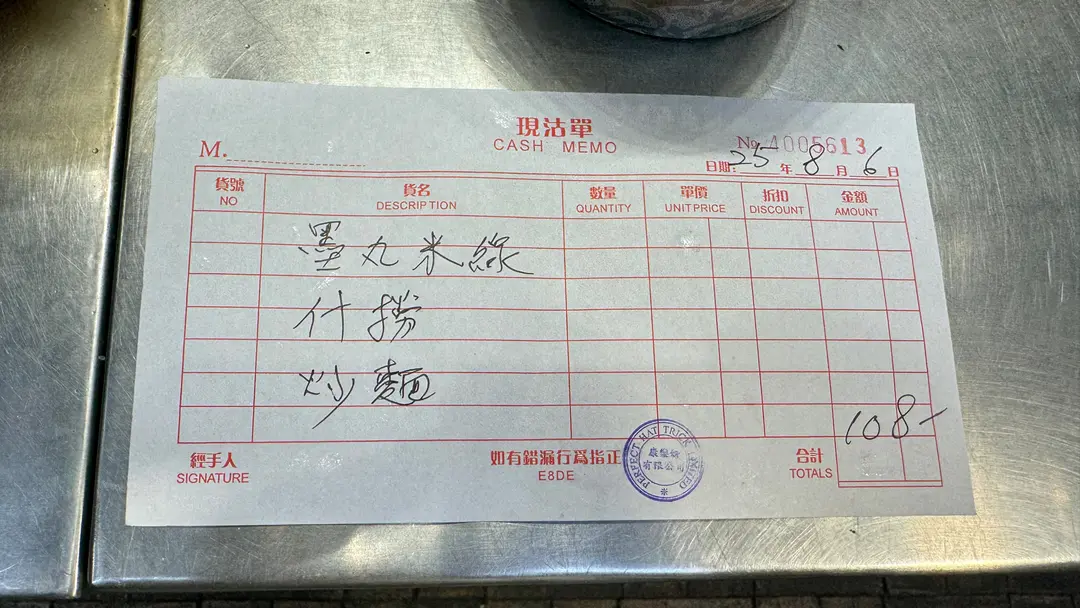 現沽單
CASH MEMO
M.
No 4005613
日期: 25 年 8 月 6 日
貨號 貨名 數量 單價 折扣 金額
NO DESCRIPTION QUANTITY UNIT PRICE DISCOUNT AMOUNT
墨丸米線
什撈
炒麵
108-
經手人 如有錯漏行爲指正 合計
SIGNATURE E8DE TOTALS
PERFECT HAT TRICK LIMITED
有限公司